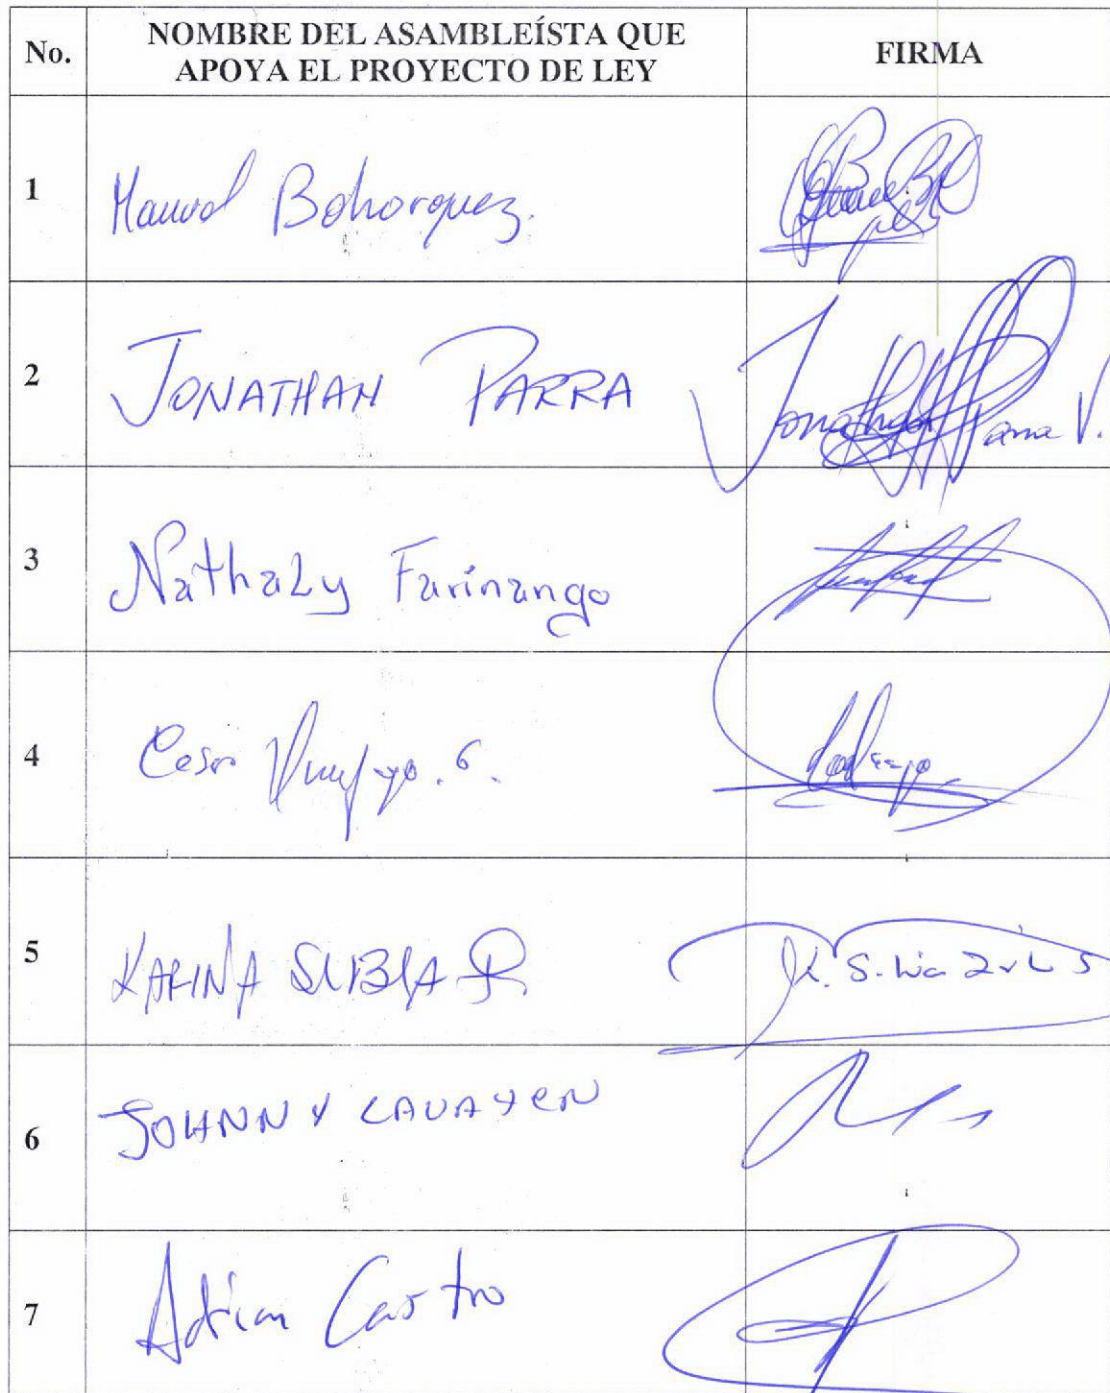 No.
NOMBRE DEL ASAMBLEÍSTA QUE
APOYA EL PROYECTO DE LEY
FIRMA
1
Manuel Bohorquez.
2
JONATHAN PARRA
Jonathan Parra V.
3
Nathaly Farinango
4
Cesar
5
KARINA SUBIA
6
JOHNNY LAVAYEN
7
Adrian Castro